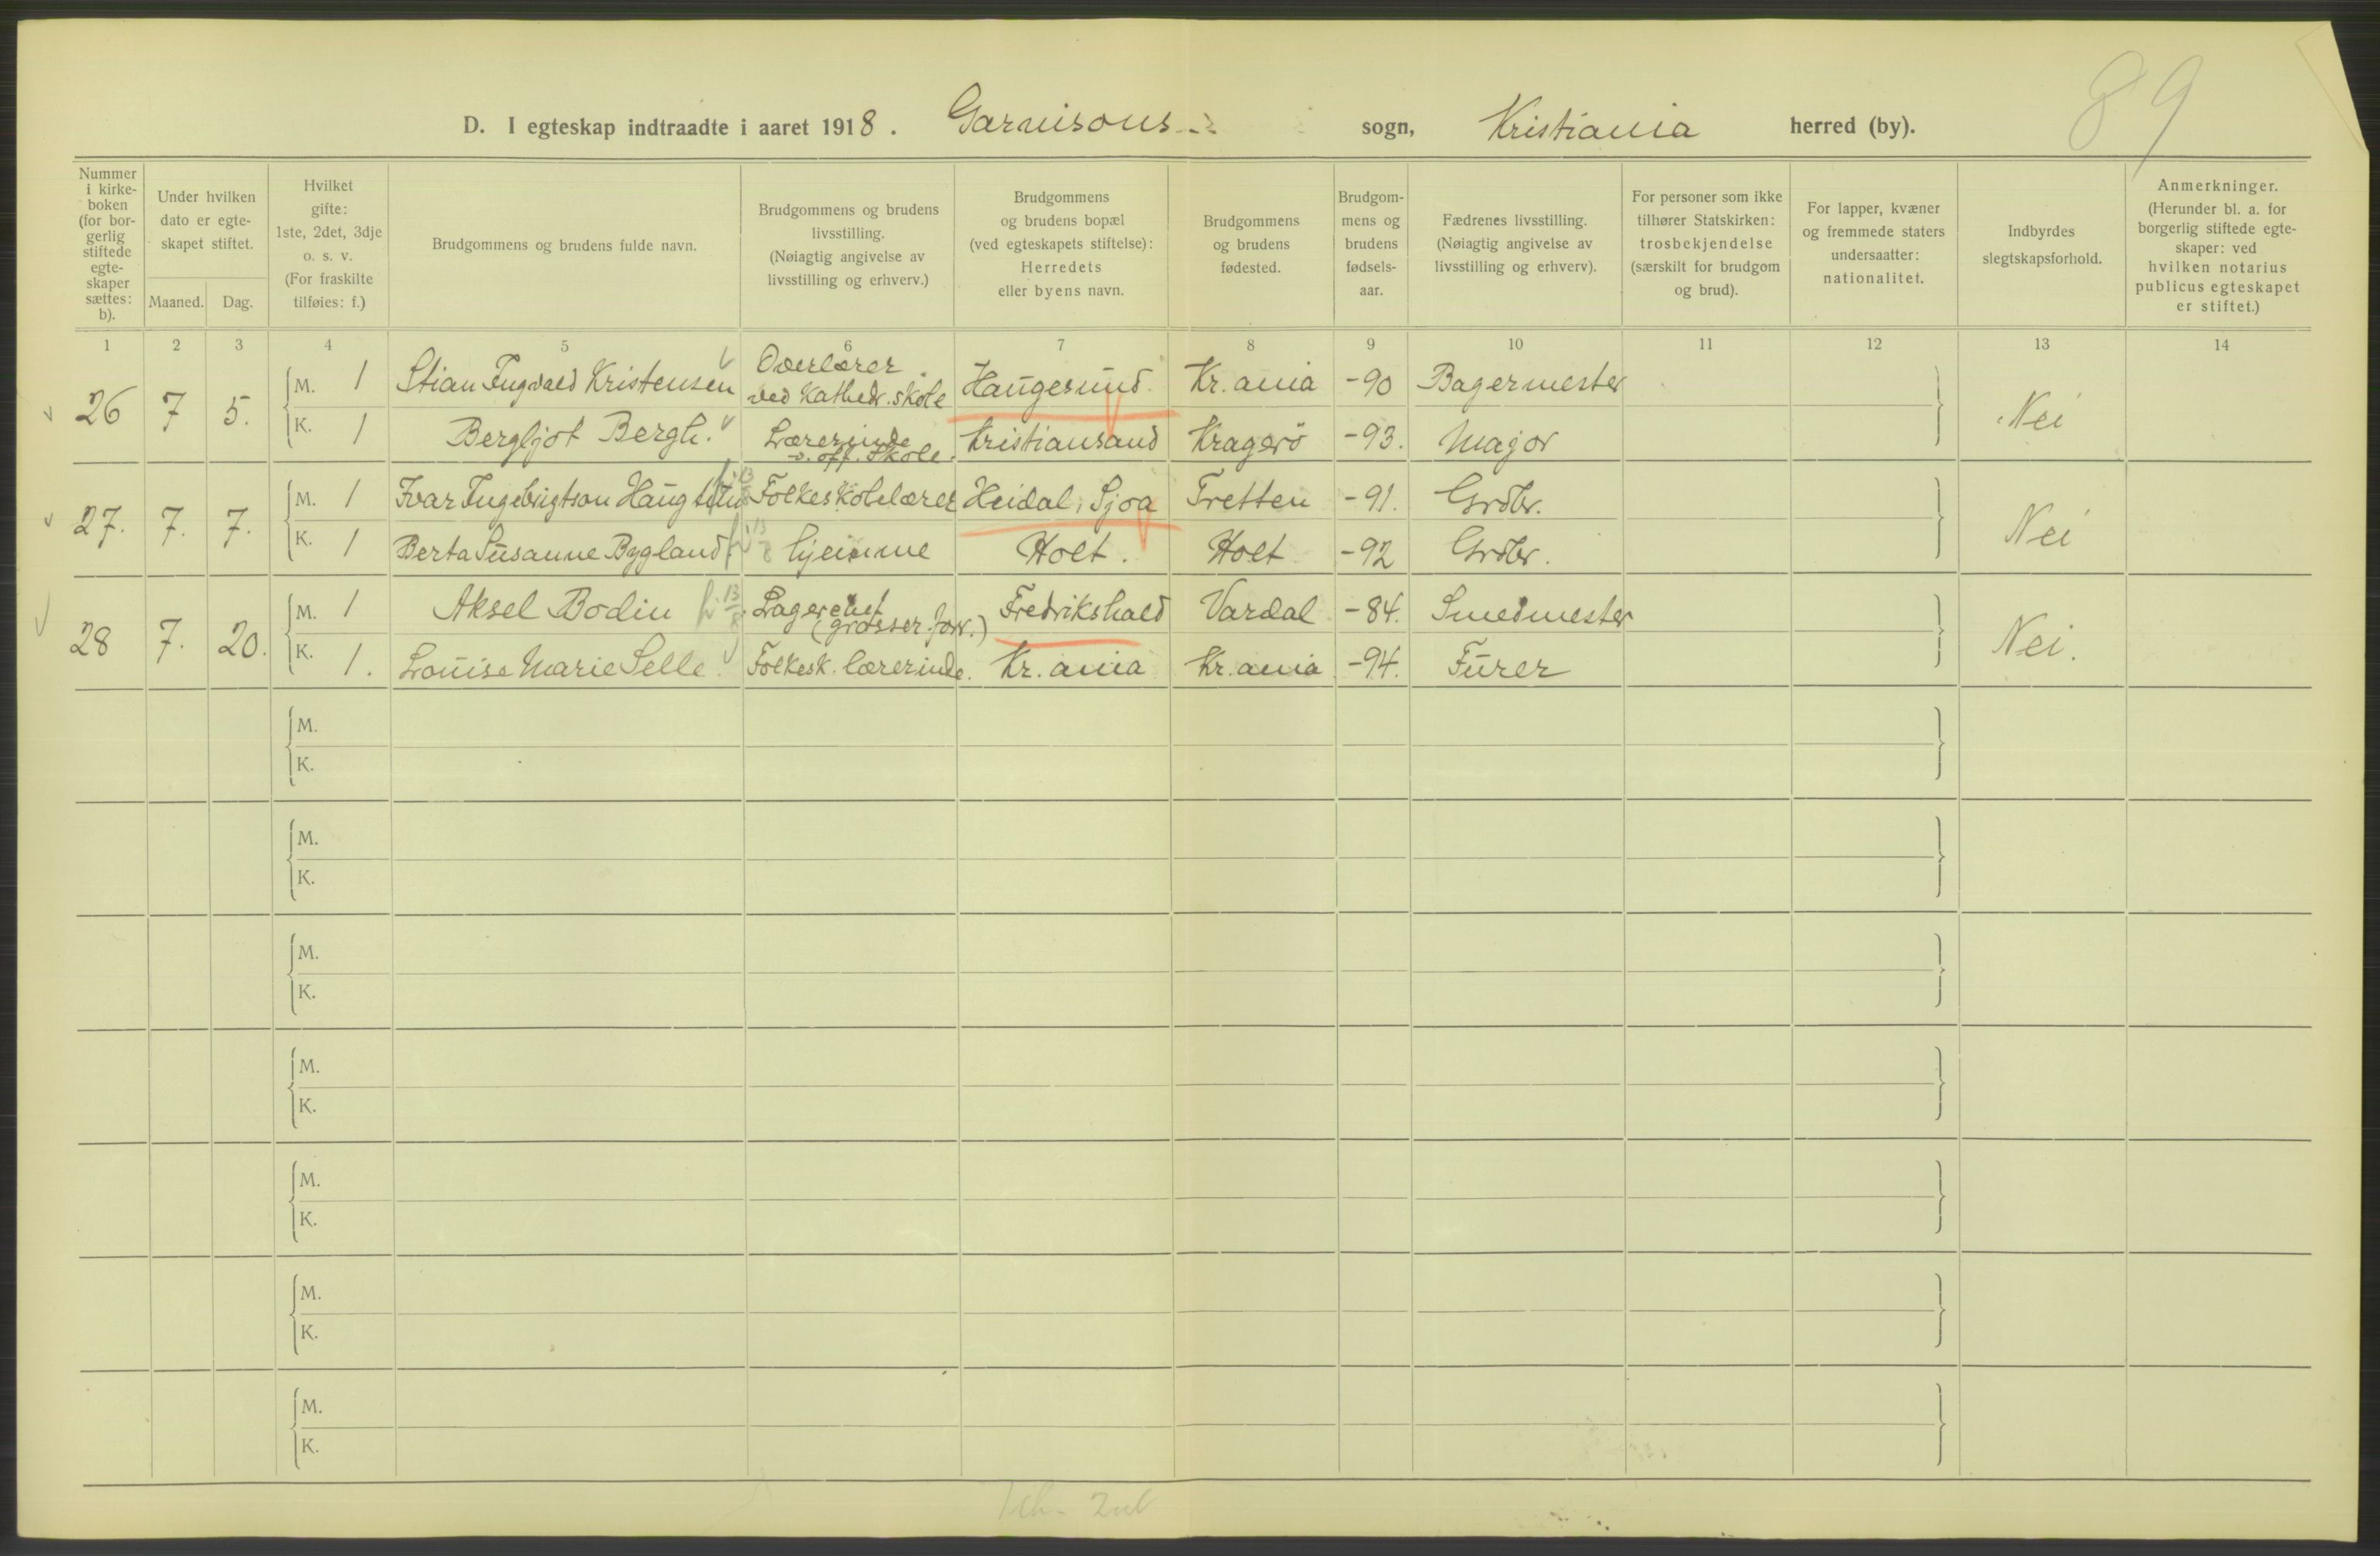 89
D. I egteskap indtraadte i aaret 1918. Garnisons sogn, Kristiania herred (by).
Nummer i kirke-boken (for bor-gerlig stiftede egte-skaper sættes: b).
Under hvilken dato er egte-skapet stiftet.
Maaned. Dag.
Hvilket gifte: 1ste, 2det, 3dje o. s. v. (For fraskilte tilføies: f.)
Brudgommens og brudens fulde navn.
Brudgommens og brudens livsstilling. (Nøiagtig angivelse av livsstilling og erhverv.)
Brudgommens og brudens bopæl (ved egteskapets stiftelse): Herredets eller byens navn.
Brudgommens og brudens fødested.
Brudgom-mens og brudens fødsels-aar.
Fædrenes livsstilling. (Nøiagtig angivelse av livsstilling og erhverv).
For personer som ikke tilhører Statskirken: trosbekjendelse (særskilt for brudgom og brud).
For lapper, kvæner og fremmede staters undersaatter: nationalitet.
Indbyrdes slegtskapsforhold.
Anmerkninger. (Herunder bl. a. for borgerlig stiftede egte-skaper: ved hvilken notarius publicus egteskapet er stiftet.)
1 2 3 4 5 6 7 8 9 10 11 12 13 14
26 7 5. M. 1 Stian Ingvald Kristensen Overlærer ved Kathedr. skole Haugesund Kr.ania -90 Bagermester Nei
K. 1 Bergljot Bergh. Lærerinde v. off. skole. Kristiansand Kragerö -93. Major
27. 7. 7. M. 1 Ivar Ingebrigtson Folkeskolelærer Heidal, Sjoa Tretten -91. Grdbr. Nei
K. 1 Berta Susanne Bygland hjemme Holt. Holt -92 Grdbr.
28 7. 20. M. 1 Aksel Bodin Lagerchef (grosser. forr.) Fredrikshald Vardal -84. Smedmester Nei.
K. 1. Louise Marie Selle. Folkesk. lærerinde. Kr.ania Kr.ania -94. Furer
M.
K.
M.
K.
M.
K.
M.
K.
M.
K.
M.
K.
M.
K.